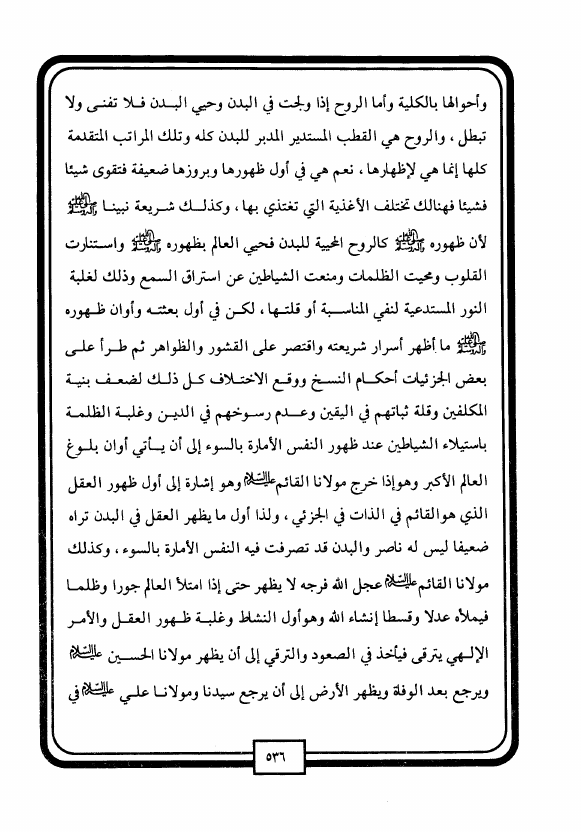 وأحوالها بالكلية وأما الروح إذا ولجت في البدن وحيي البدن فلا تفنى ولا
تبطل ، والروح هي القطب المستدير المدبر للبدن كله وتلك المراتب المتقدمة
كلها إنما هي لإظهارها ، نعم هي في أول ظهورها وبروزها ضعيفة فتقوى شيئا
فشيئا فهنالك تختلف الأغذية التي تغتذي بها ، وكذلك شريعة نبينا ﷺ
لأن ظهوره ﷺ كالروح المحيية للبدن فحيي العالم بظهوره ﷺ واستنارت
القلوب ومحيت الظلمات ومنعت الشياطين عن استراق السمع وذلك لغلبة
النور المستدعية لنفي المناسبة أو قلتها ، لكن في أول بعثته وأوان ظهوره
ﷺ ما أظهر أسرار شريعته واقتصر على القشور والظواهر ثم طرأ على
بعض الجزئيات أحكام النسخ ووقع الاختلاف كل ذلك لضعف بنية
المكلفين وقلة ثباتهم في اليقين وعدم رسوخهم في الدين وغلبة الظلمة
باستيلاء الشياطين عند ظهور النفس الأمارة بالسوء إلى أن يأتي أوان بلوغ
العالم الأكبر وهوإذا خرج مولانا القائم عليه السلام وهو إشارة إلى أول ظهور العقل
الذي هوالقائم في الذات في الجزئي ، ولذا أول ما يظهر العقل في البدن تراه
ضعيفا ليس له ناصر والبدن قد تصرفت فيه النفس الأمارة بالسوء ، وكذلك
مولانا القائم عليه السلام عجل الله فرجه لا يظهر حتى إذا امتلأ العالم جورا وظلما
فيملأه عدلا وقسطا إنشاء الله وهوأول النشاط وغلبة ظهور العقل والأمر
الإلهي يترقى فيأخذ في الصعود والترقي إلى أن يظهر مولانا الحسين عليه السلام
ويرجع بعد الوفاة ويظهر الأرض إلى أن يرجع سيدنا ومولانا علي عليه السلام في
٥٣٦